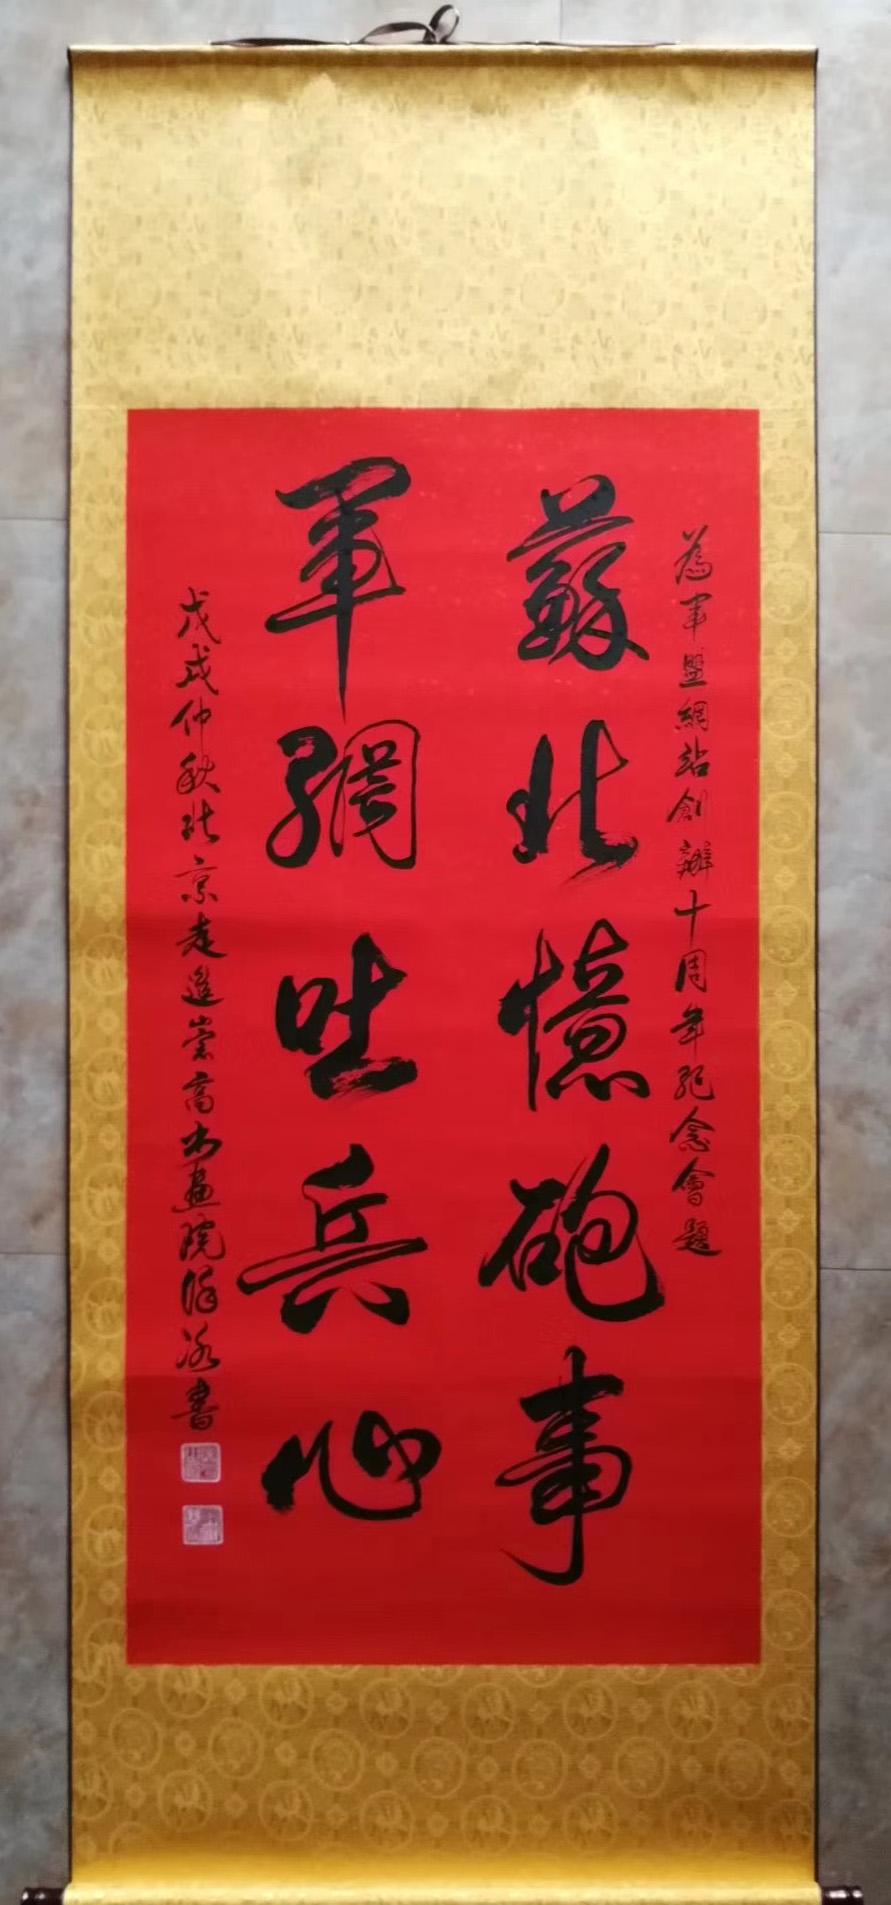 為軍盟網站創辦十周年紀念會題
蘇北憶砲事
軍網吐兵心
戊戌仲秋北京走進崇高書畫院 書